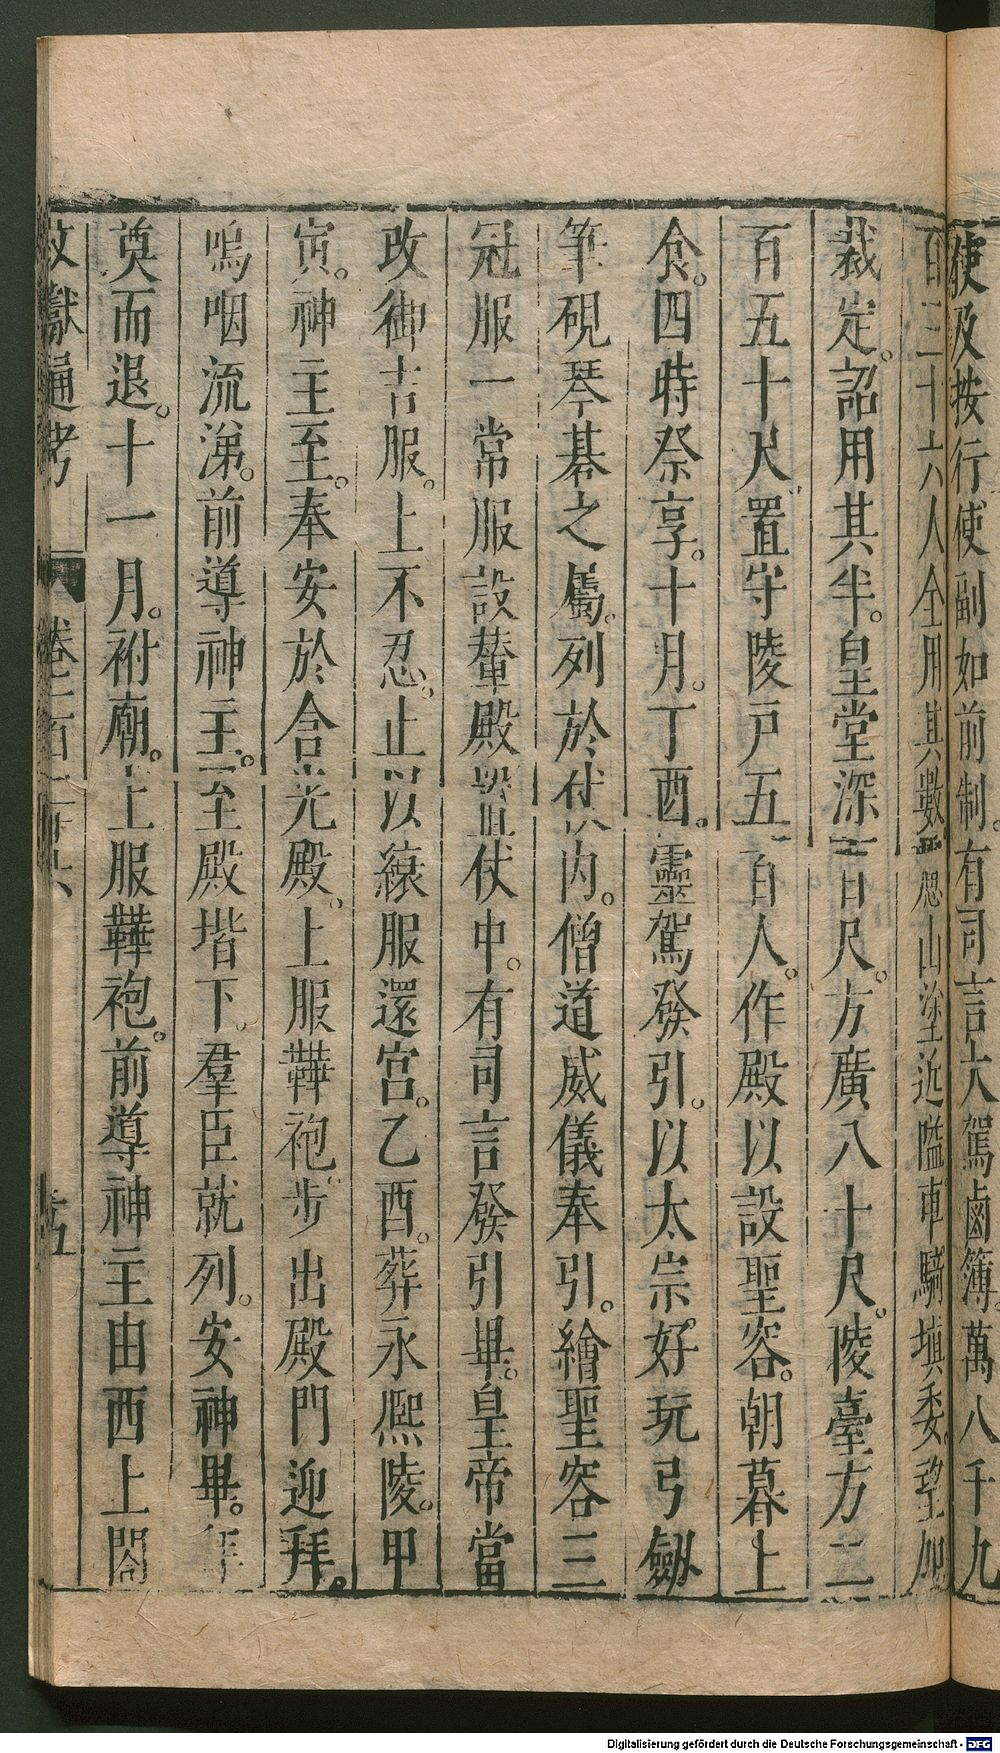 使及按行使副如前制。有司言大駕鹵簿。萬八千九
百三十六人全用其數 慮山塗近隘。車騎塡委。望加
裁定。詔用其半。皇堂深百尺。方廣八十尺。陵臺方二
百五十尺。置守陵戶五百人。作殿以設聖容。朝暮上
食。四時祭享。十月。丁酉。靈駕發引。以太宗好玩弓劒
筆硯琴碁之屬。列於仗內。僧道威儀奉引。繪聖容三
冠服一常服設輦殿 仗中。有司言發引畢。皇帝當
改御吉服。上不忍。止以縗服還宮。乙酉。葬永熙陵。甲
寅。神主至。奉安於含光殿。上服鞾袍。步出殿門迎拜。
嗚咽流涕。前導神主。至殿堦下。羣臣就列。安神畢。
奠而退。十一月。祔廟。上服鞾袍。前導神主由西上閤
文獻通考 卷一百二十六 五
Digitalisierung gefördert durch die Deutsche Forschungsgemeinschaft - DFG